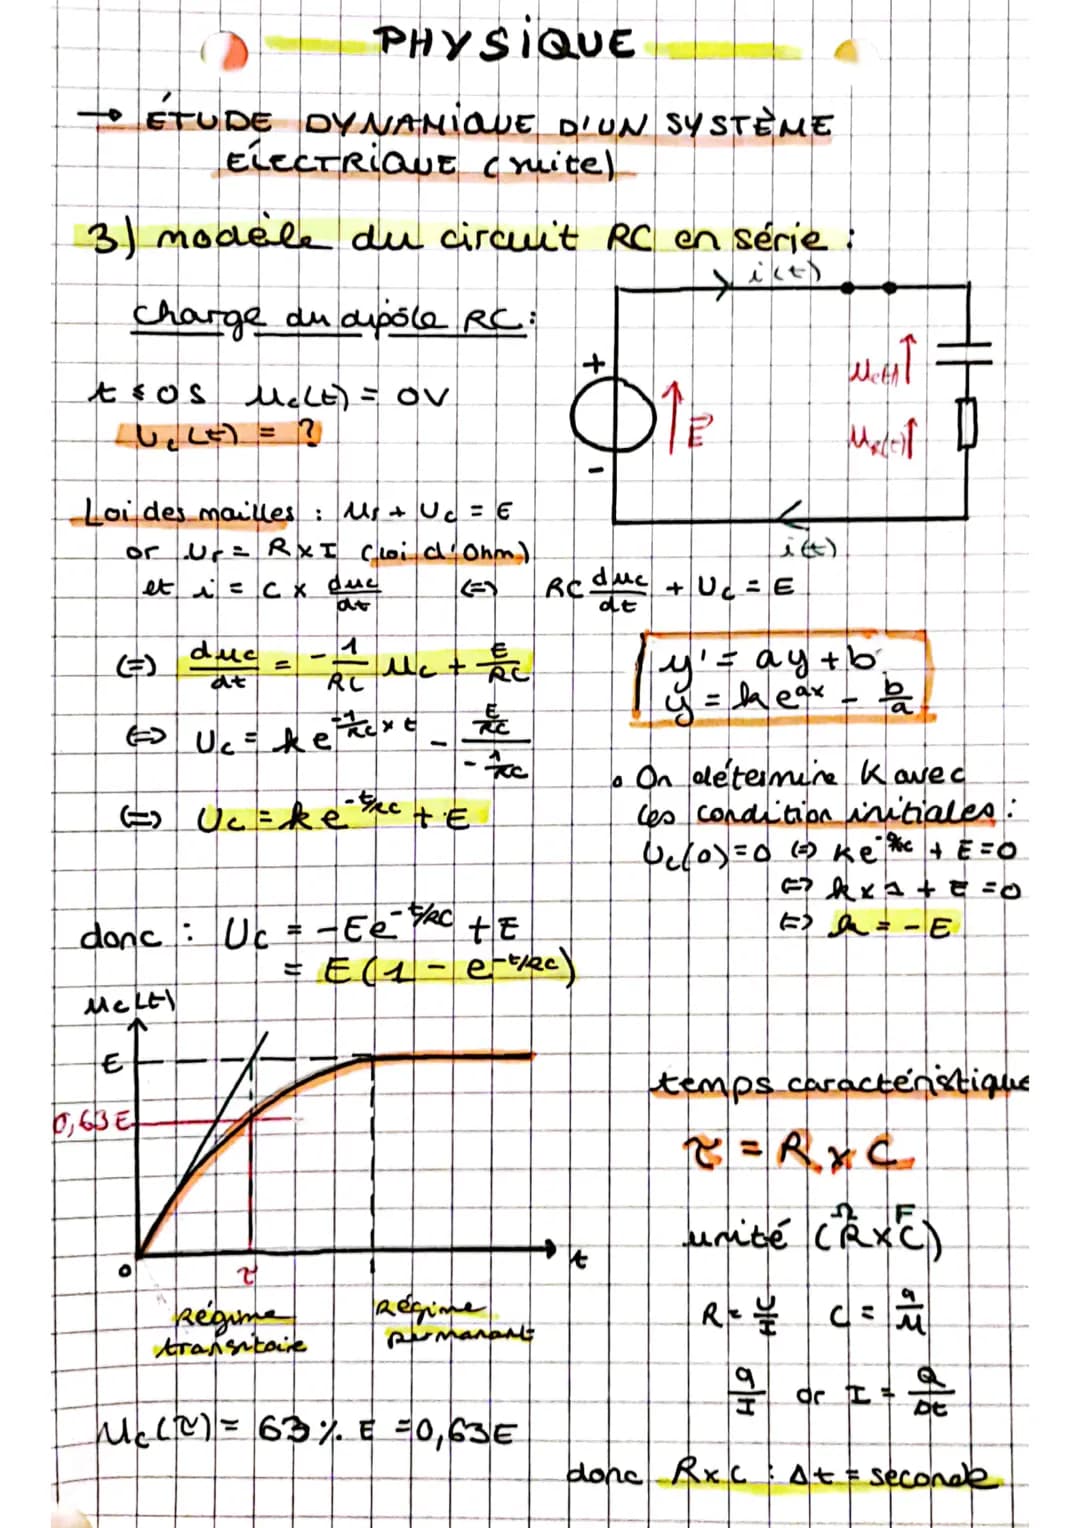 PHYSIQUE
→ ÉTUDE DYNAMIQUE D'UN SYSTÈME
ÉLECTRIQUE (suite)
3) modèle du circuit RC en série :
i(t)
charge du dipôle RC :
+
uc(t)
t ≤ 0s uc(t) = 0V
E
Uc(t) = ?
uR(t)
-
Loi des mailles : Ur + Uc = E
i(t)
or Ur = R×I (loi d'Ohm)
et i = C × duc/dt (=) RC duc/dt + Uc = E
(=) duc/dt = - 1/RC uc + E/RC
y' = ay + b
y = k e^ax - b/a
(=) Uc = k e^(-1/RC × t) - (E/RC)/(-1/RC)
(=) Uc = k e^(-t/RC) + E
• On détermine K avec
les condition initiales :
Uc(0) = 0 (=) Ke^(-0/RC) + E = 0
(=) k×1 + E = 0
(=) k = - E
donc : Uc = -Ee^(-t/RC) + E
= E(1 - e^(-t/RC))
uc(t)
E
0,63E
0
τ
t
Régime
transitoire
Régime
permanant
uc(τ) = 63 % E = 0,63E
temps caractéristique
τ = R × C
Ω F
unité (R×C)
R = U/I C = q/u
q/I or I = Q/Δt
donc R×C : Δt = seconde